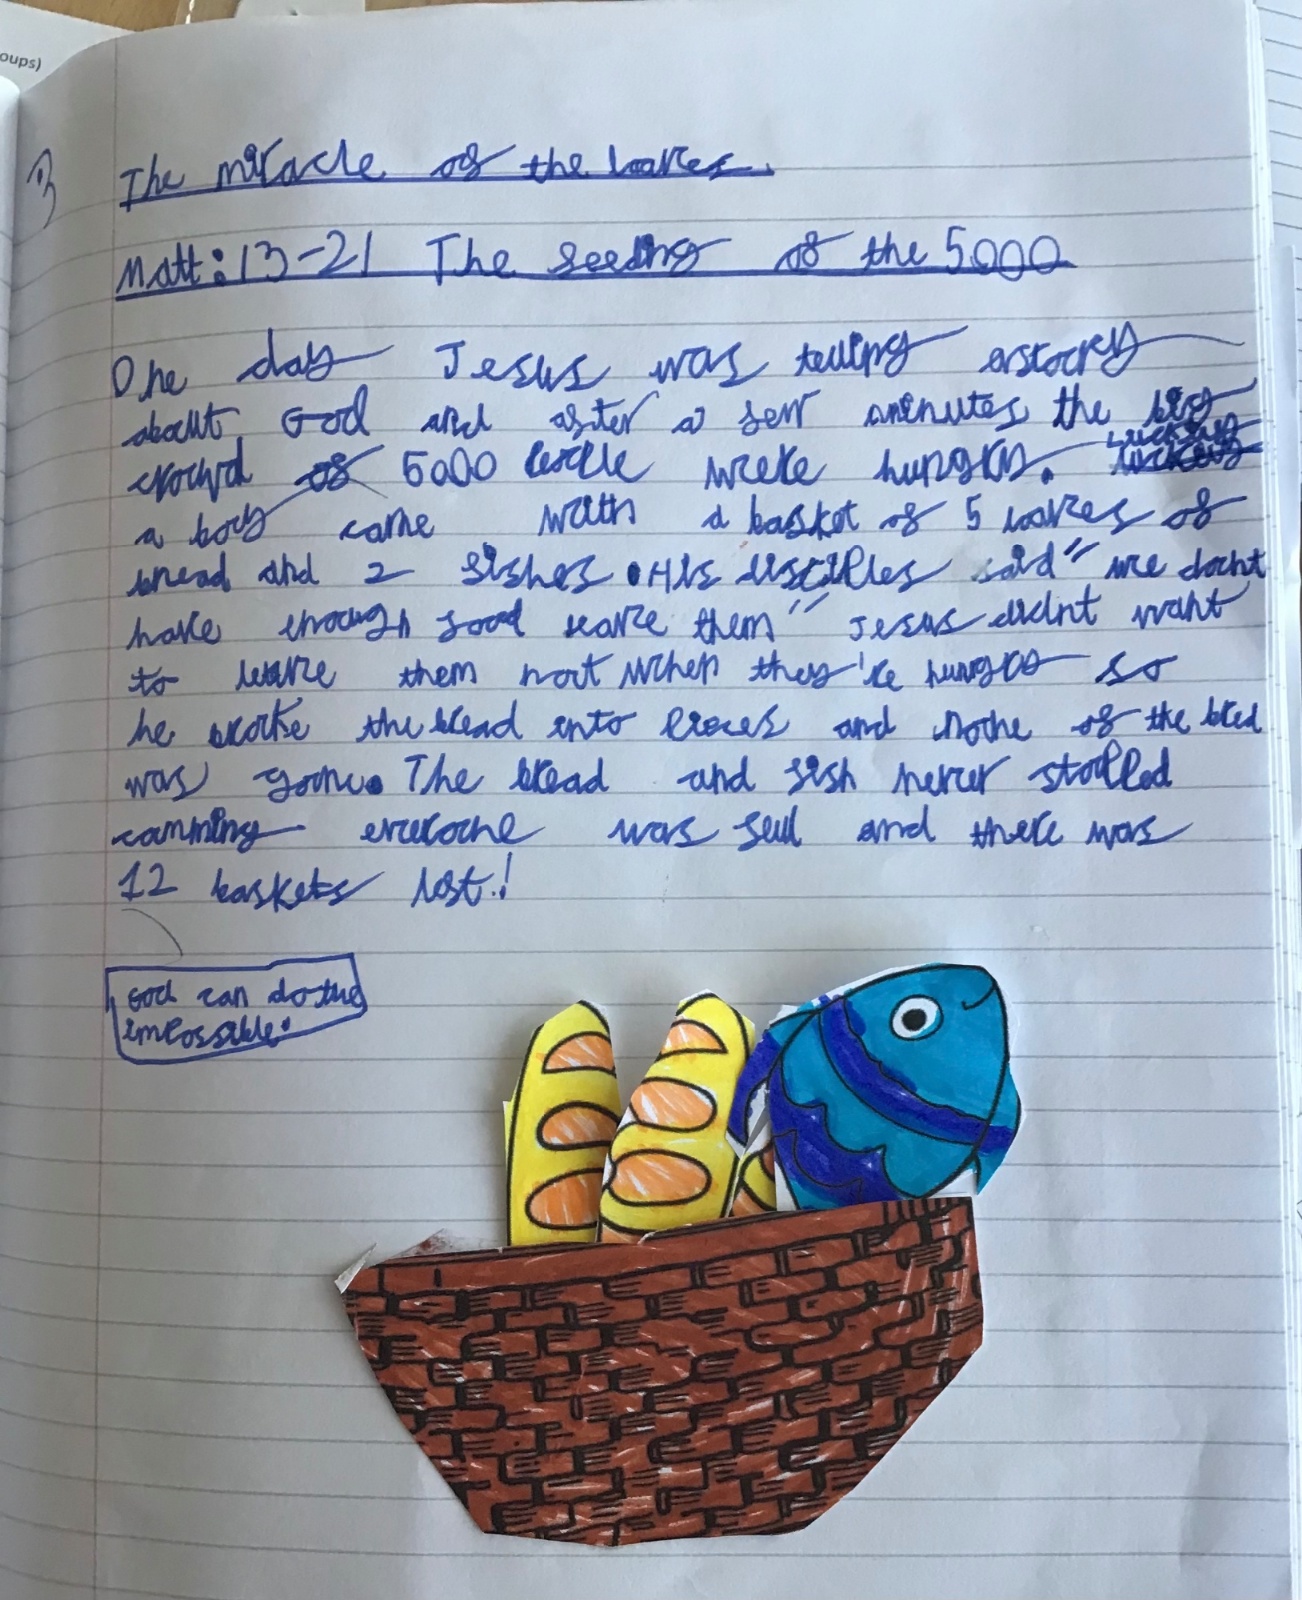 oups)
3
The miracle of the loaves.
Matt:13-21 The feeding of the 5000
One day Jesus was telling astorey
about God and after a few minutes the big
crowd of 5000 people were hungry. luckily
a boy came with a basket of 5 loaves of
bread and 2 fishes. His disciples said "we docnt
have enough food leave them" Jesus didnt want
to leave them not when they're hungry so
he broke the bread into pieces and none of the bred
was gone. The bread and fish never stopped
comming everyone was full and there was
12 baskets lest!
God can do the
impossible.